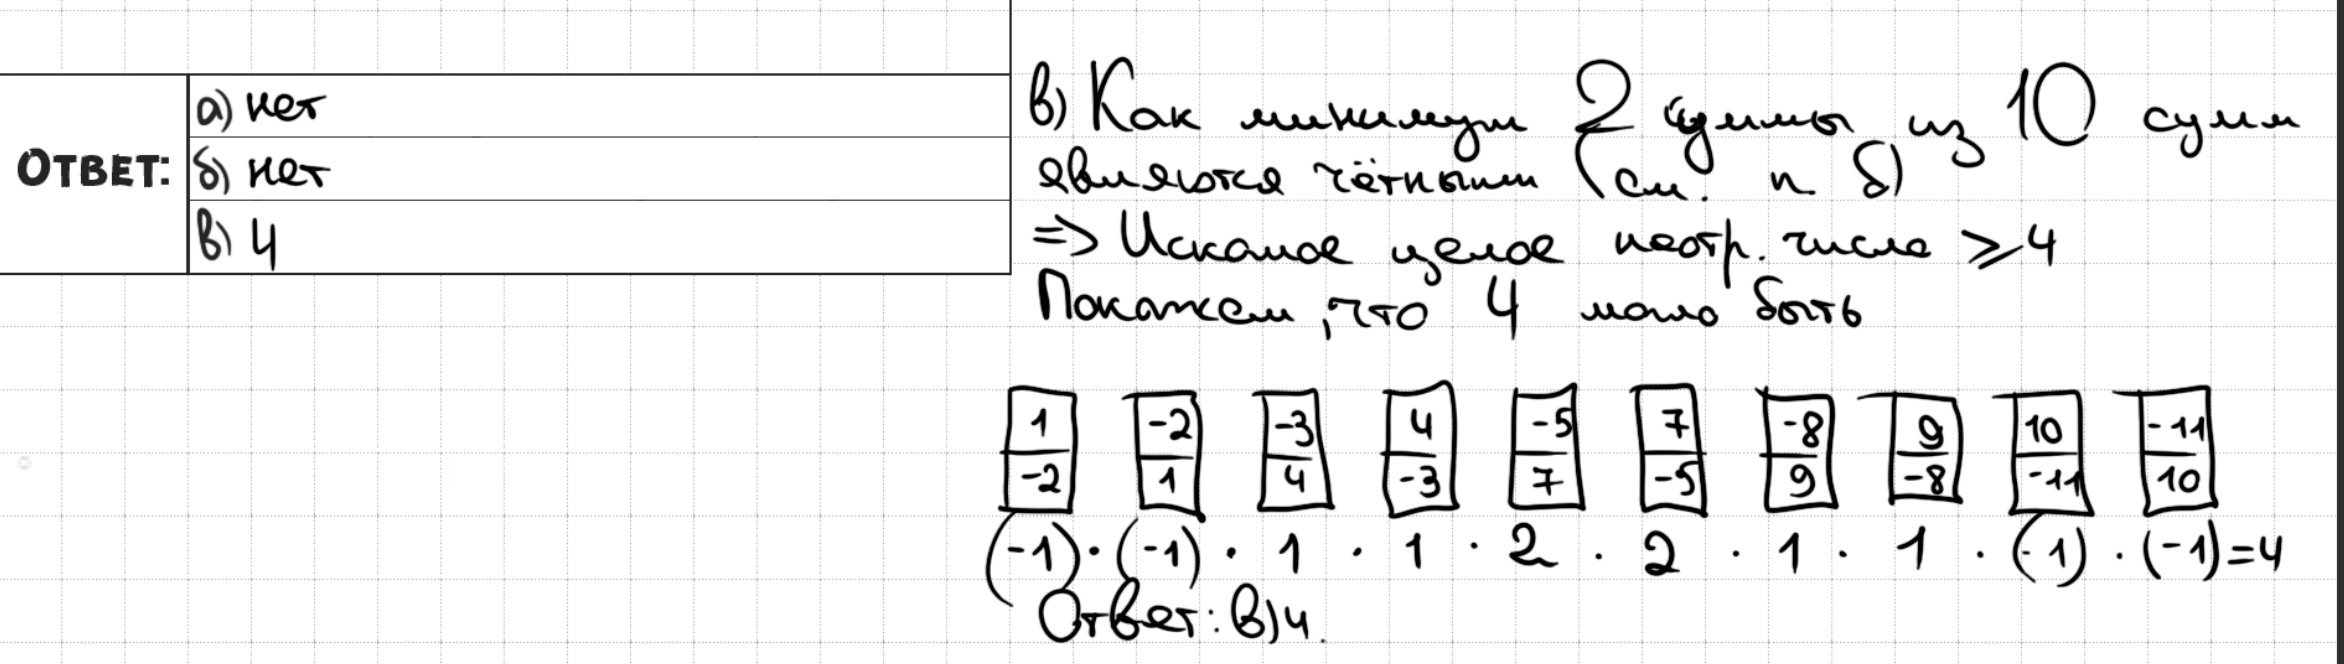 ОТВЕТ:
а) нет
б) нет
в) 4
в) Как минимум 2 суммы из 10 сумм
являются чётными (см. п. б)
=> Искомое целое неотр. число ⩾ 4
Покажем, что 4 могло быть
1 -2 -3 4 -5 7 -8 9 10 -11
-2 1 4 -3 7 -5 9 -8 -11 10
(-1) · (-1) · 1 · 1 · 2 · 2 · 1 · 1 · (-1) · (-1) = 4
Ответ: в) 4.